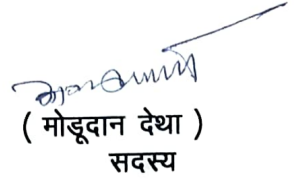 ( मोडूदान देथा )
सदस्य